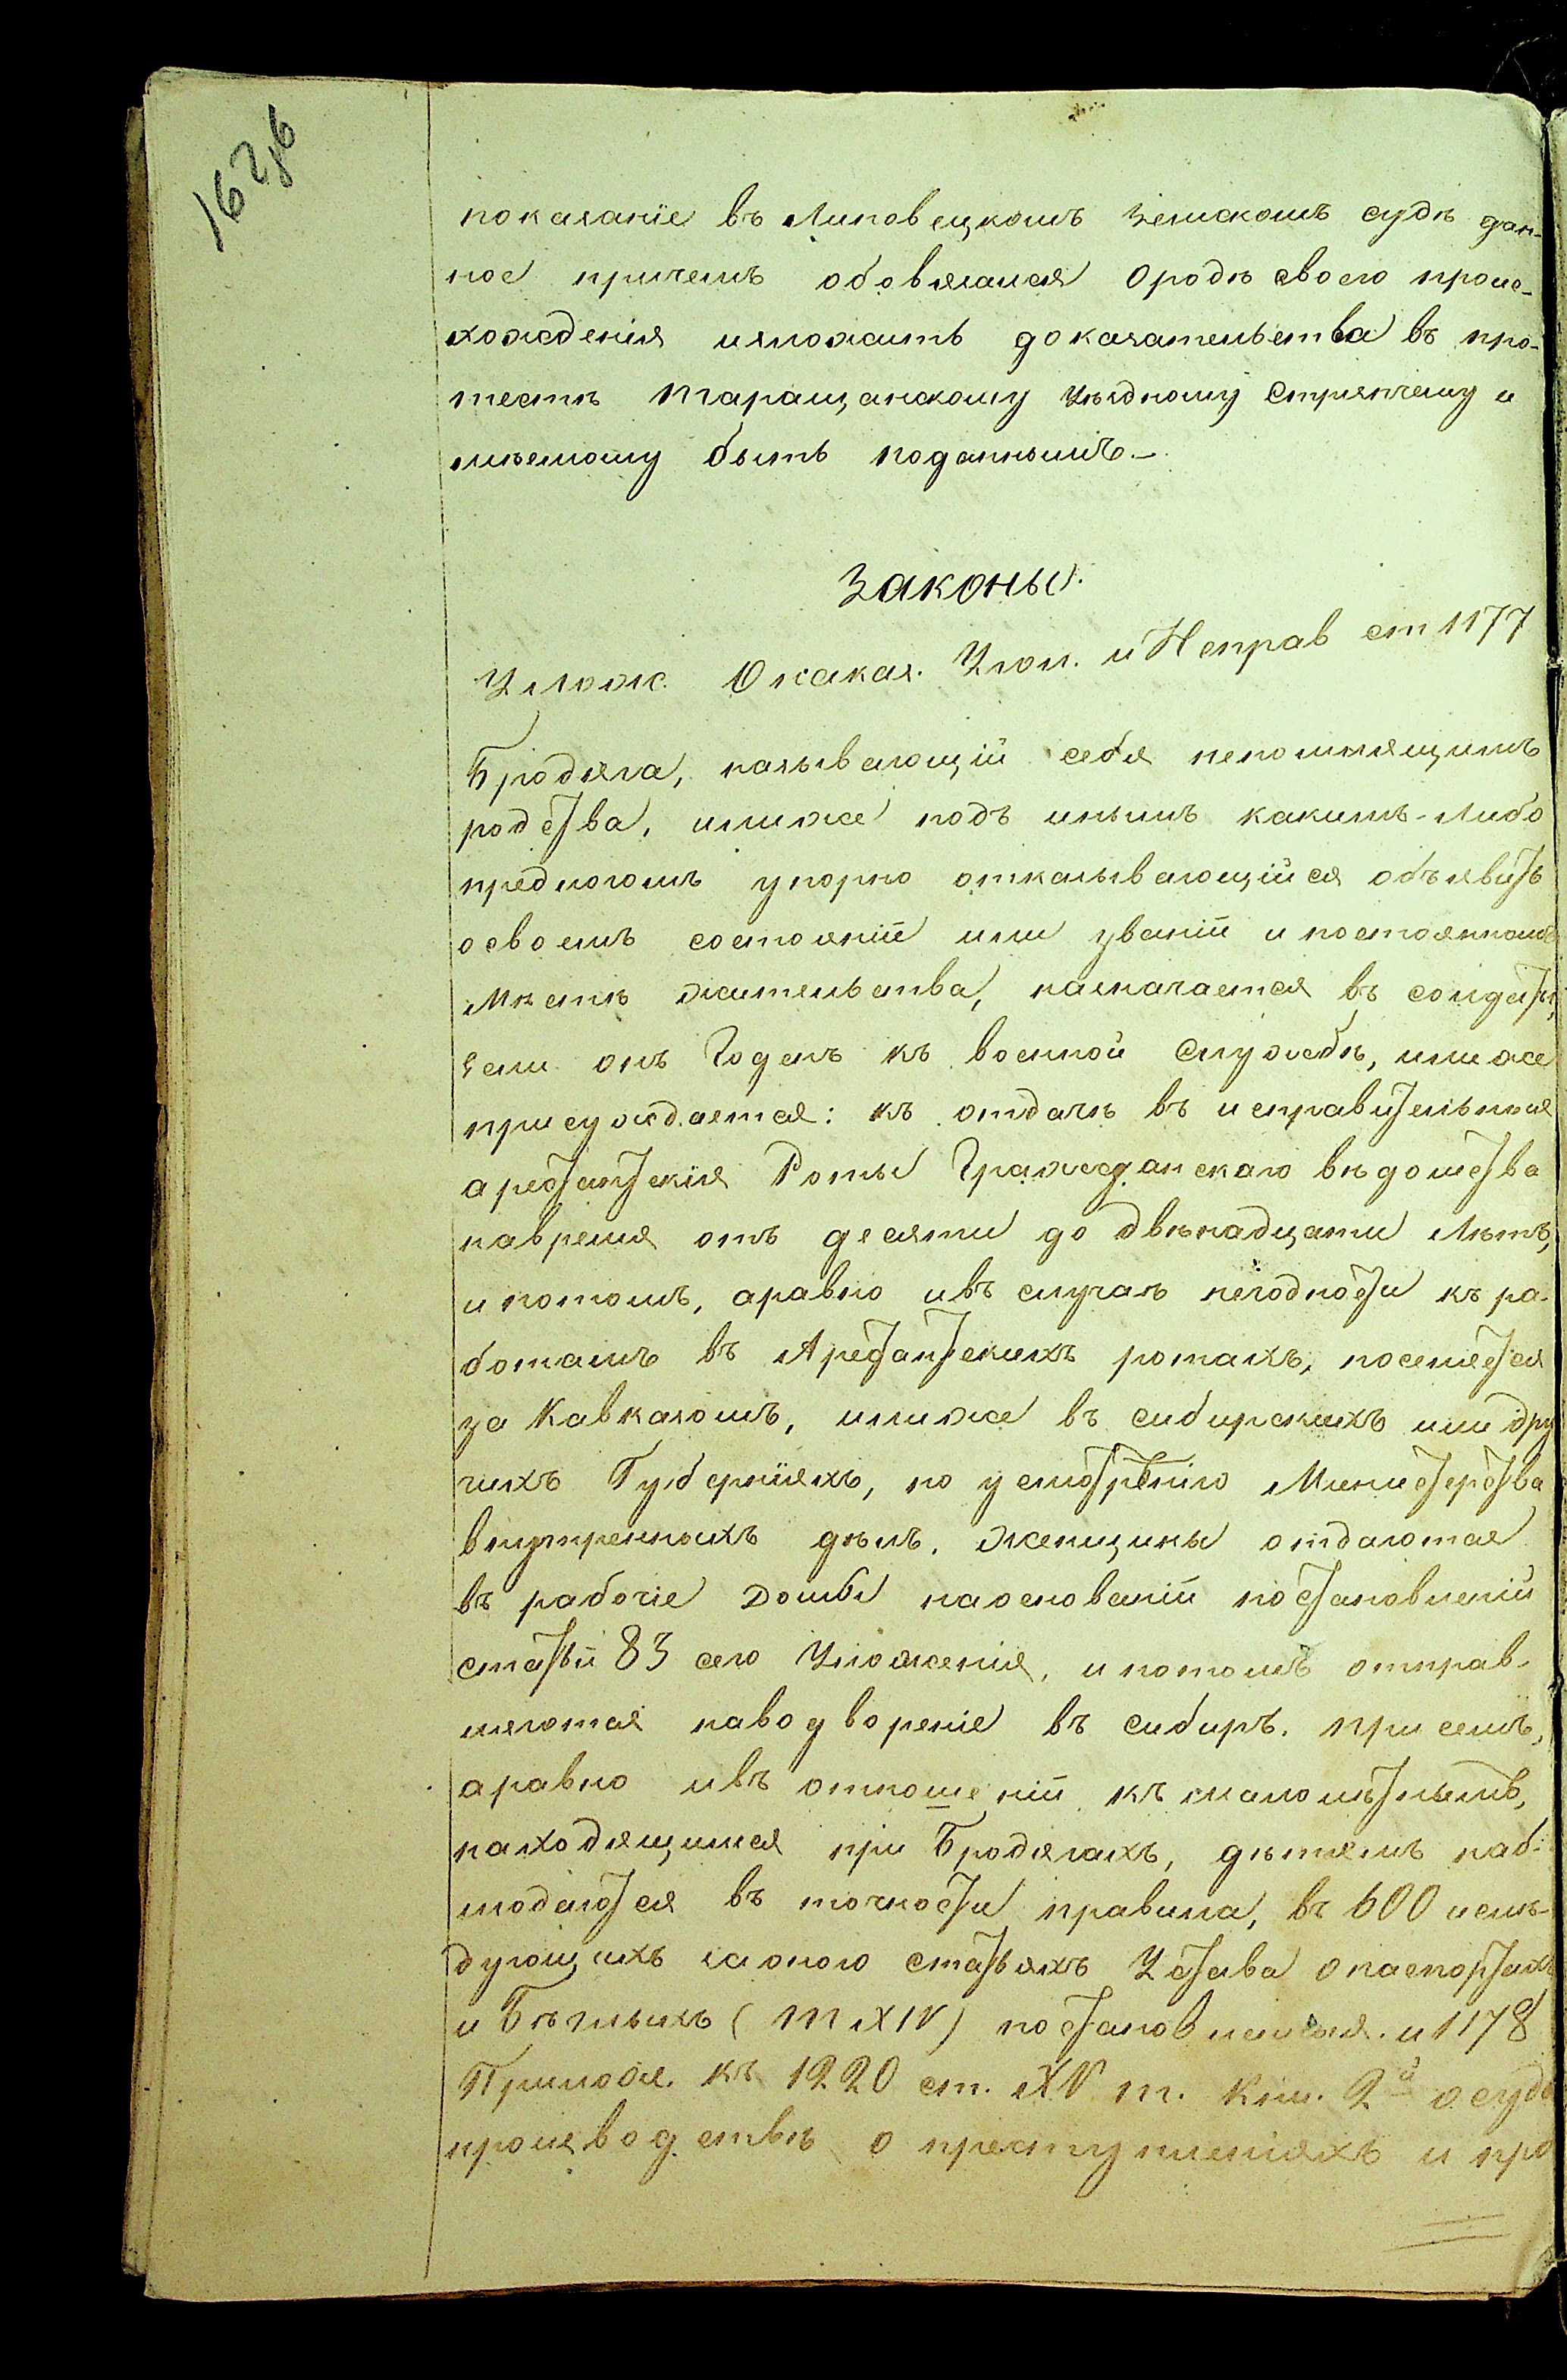 162об
показаніе въ Липовецкомъ Земскомъ судѣ дан-
ное причемъ обовязался ородѣ своего проис-
хожденія изложить доказательства въ про-
тестѣ Таращанскому Уѣздному Стряпчему и
имѣемому быть поданнымъ.-
Законы.
Улож. Онаказ. Угол. и Исправ ст 1177
Бродяга, называющій себя непомнящимъ
родства, илиже подъ инымъ какимъ-либо
предлогомъ упорно отказывающійся объявить
освоемъ состояніи или званіи и постоянномъ
Мѣстѣ жительства, назначается въ солдаты,
Если онъ Годенъ къ военной Службѣ, илиже
присуждается: къ отдачѣ въ исправительныя
арестантскія Роты Гражданскаго вѣдомства
навремя отъ десяти до двѣнадцати Лѣтъ,
и потомъ, аравно ивъ случаѣ негодности къ ра-
ботамъ въ Арестантскихъ ротахъ, поселяется
за Кавказомъ, илиже въ сибирскихъ или дру
гихъ Губерніяхъ, по усмотрѣнію Министерства
внутренныхъ дѣлъ. Женщины отдаются
въ рабочіе Домы наоснованіи постановленій
статьи 83 сего Уложенія, и потомъ отправ-
ляются наводвореніе въ сибирь. При семъ,
аравно ивъ отношеніи къ малолѣтнымъ,
находящимся при Бродягахъ, дѣтямъ наб-
людаются въ точности правила, въ 600 ислѣ-
дующихъ заоною статьяхъ Устава о паспортахъ
и Бѣглыхъ (т XIV) постановленныя. и 1178
Прилож. къ 1220 ст. XV т. Кни. 2й о судо
производствѣ о преступленіяхъ и про